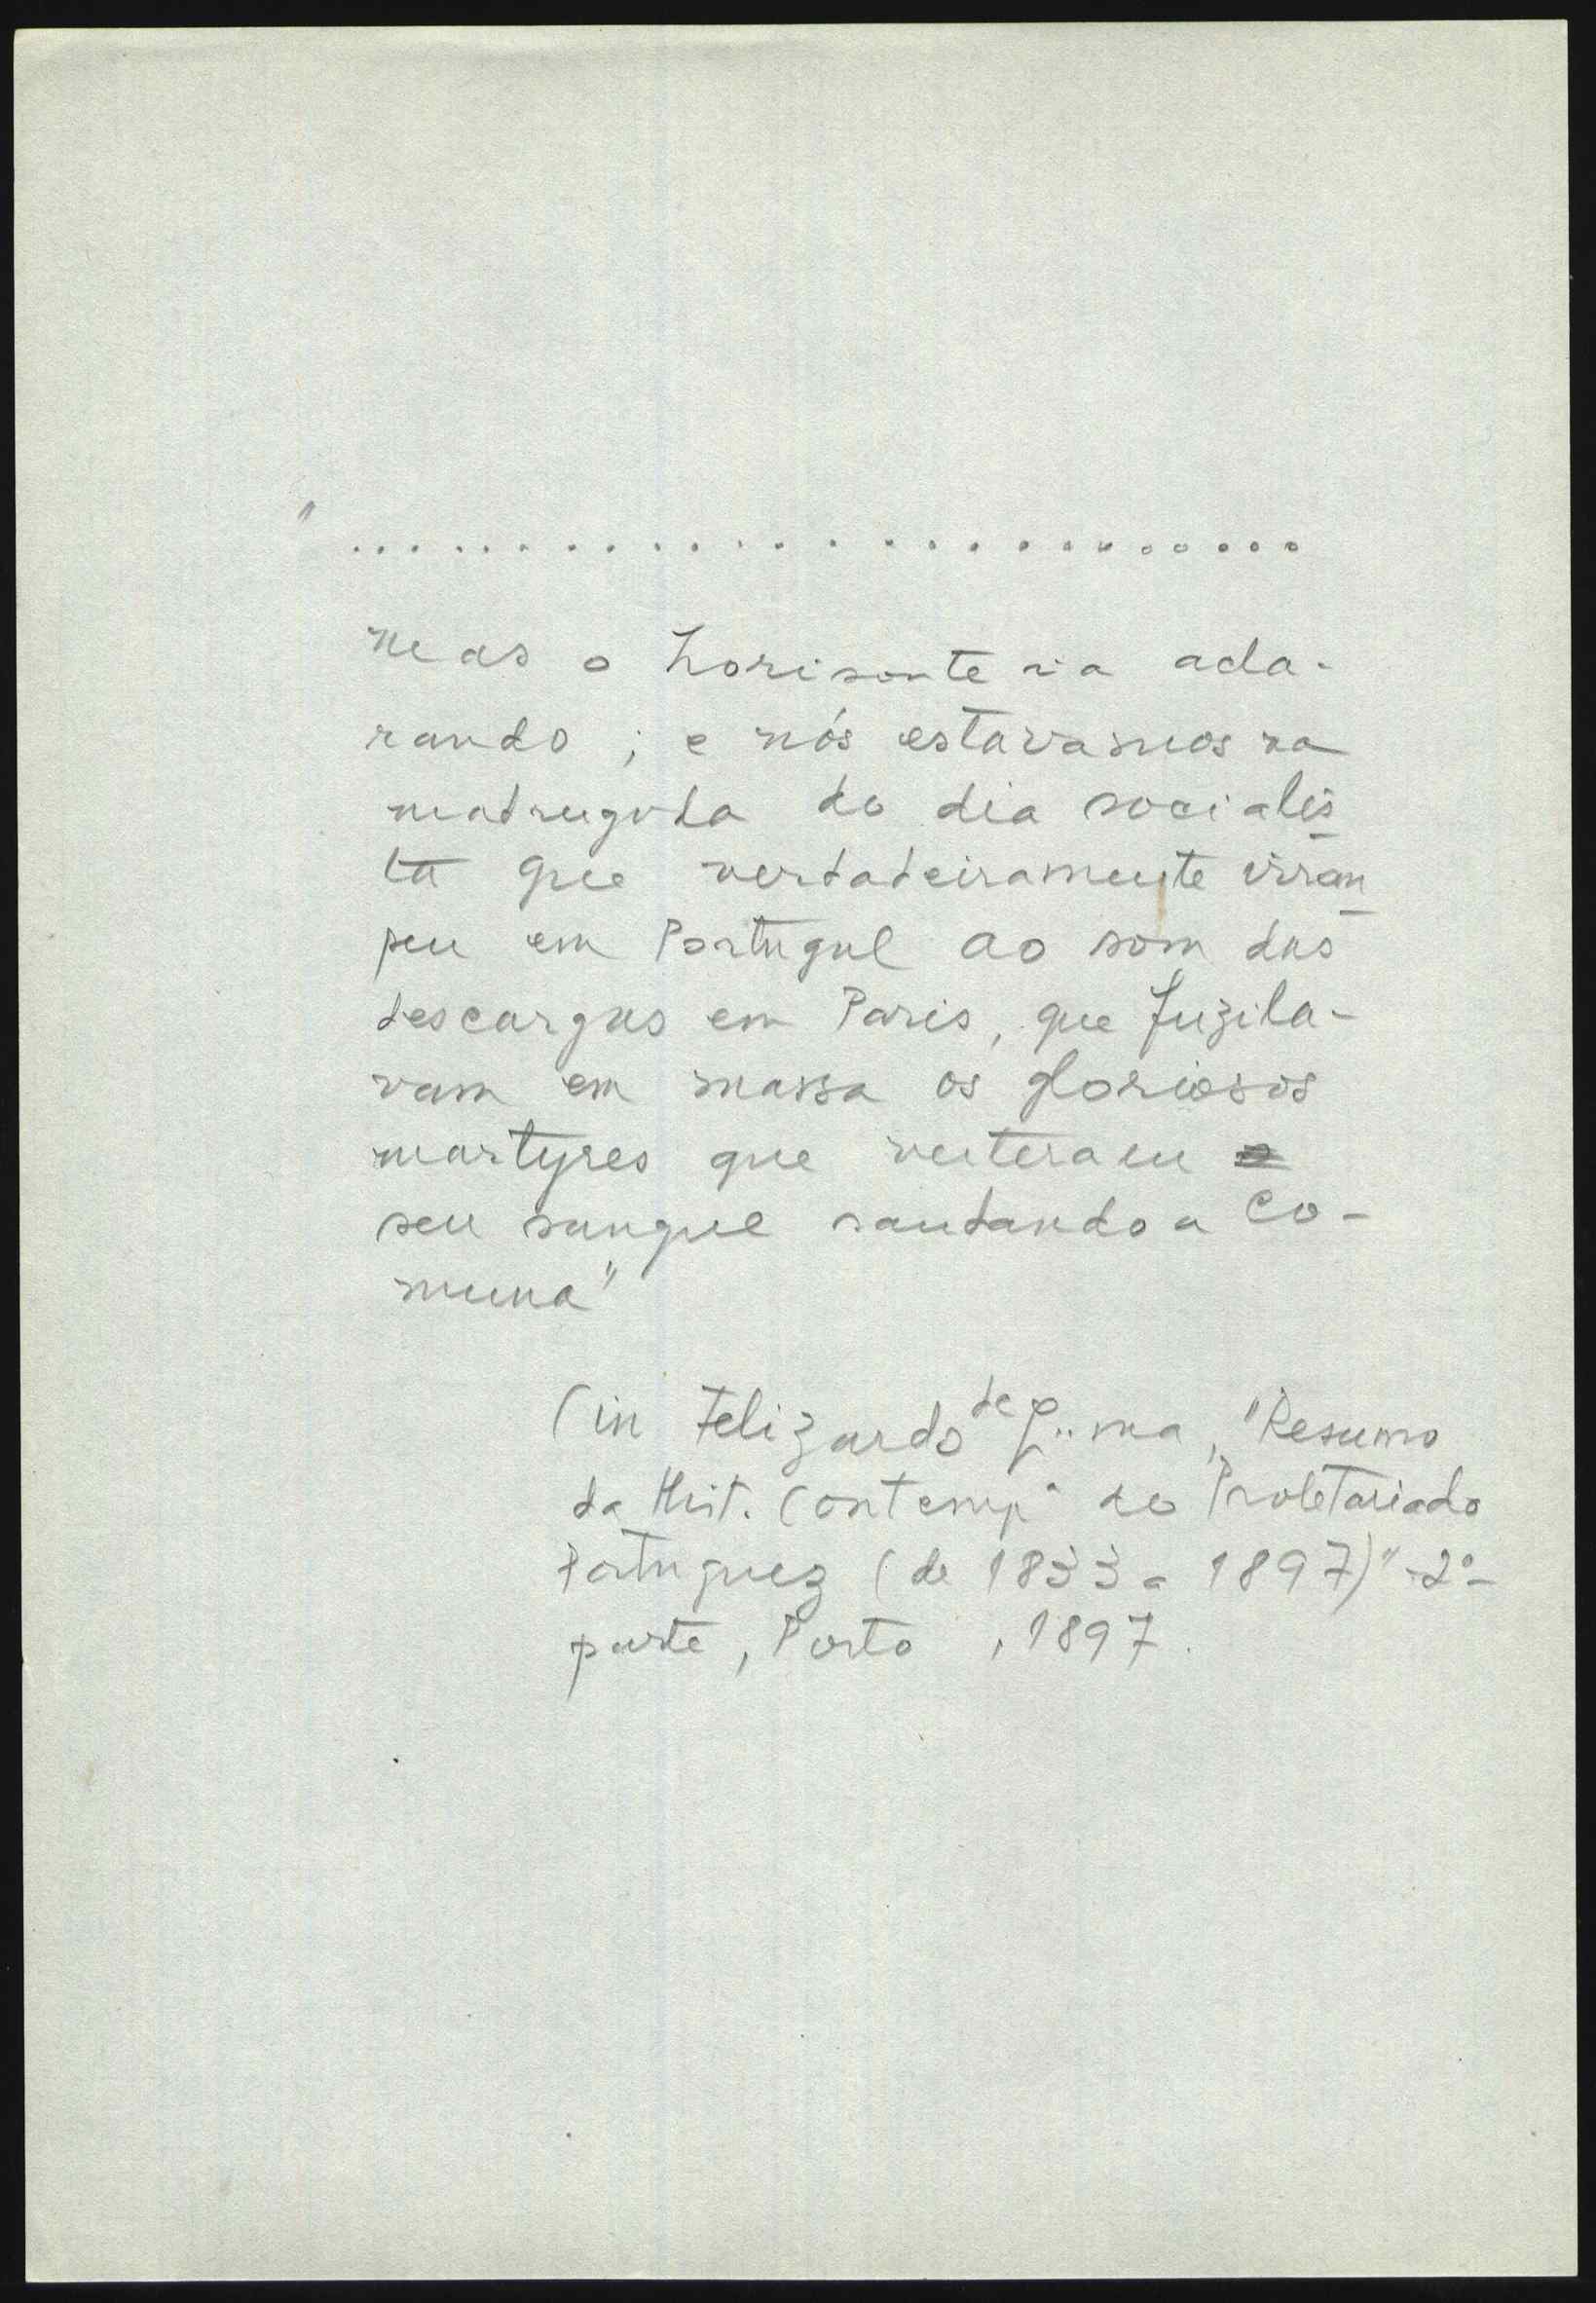 " . . . . . . . . . . . . . . . . . . . . . . . . . . .
mas o horisonte ia acla-
rando ; e nós estavamos na
madrugada do dia socialis
ta que verdadeiramente irrom
peu em Portugal ao som das
descargas em Paris, que fuzila-
vam em massa os gloriosos
martyres que verteram
seu sangue saudando a Co-
muna"
(in Felizardo de Lima, "Resumo
da Hist. Contempª do Proletariado
Portuguez (de 1833 a 1897)" - 2ª
parte, Porto , 1897.